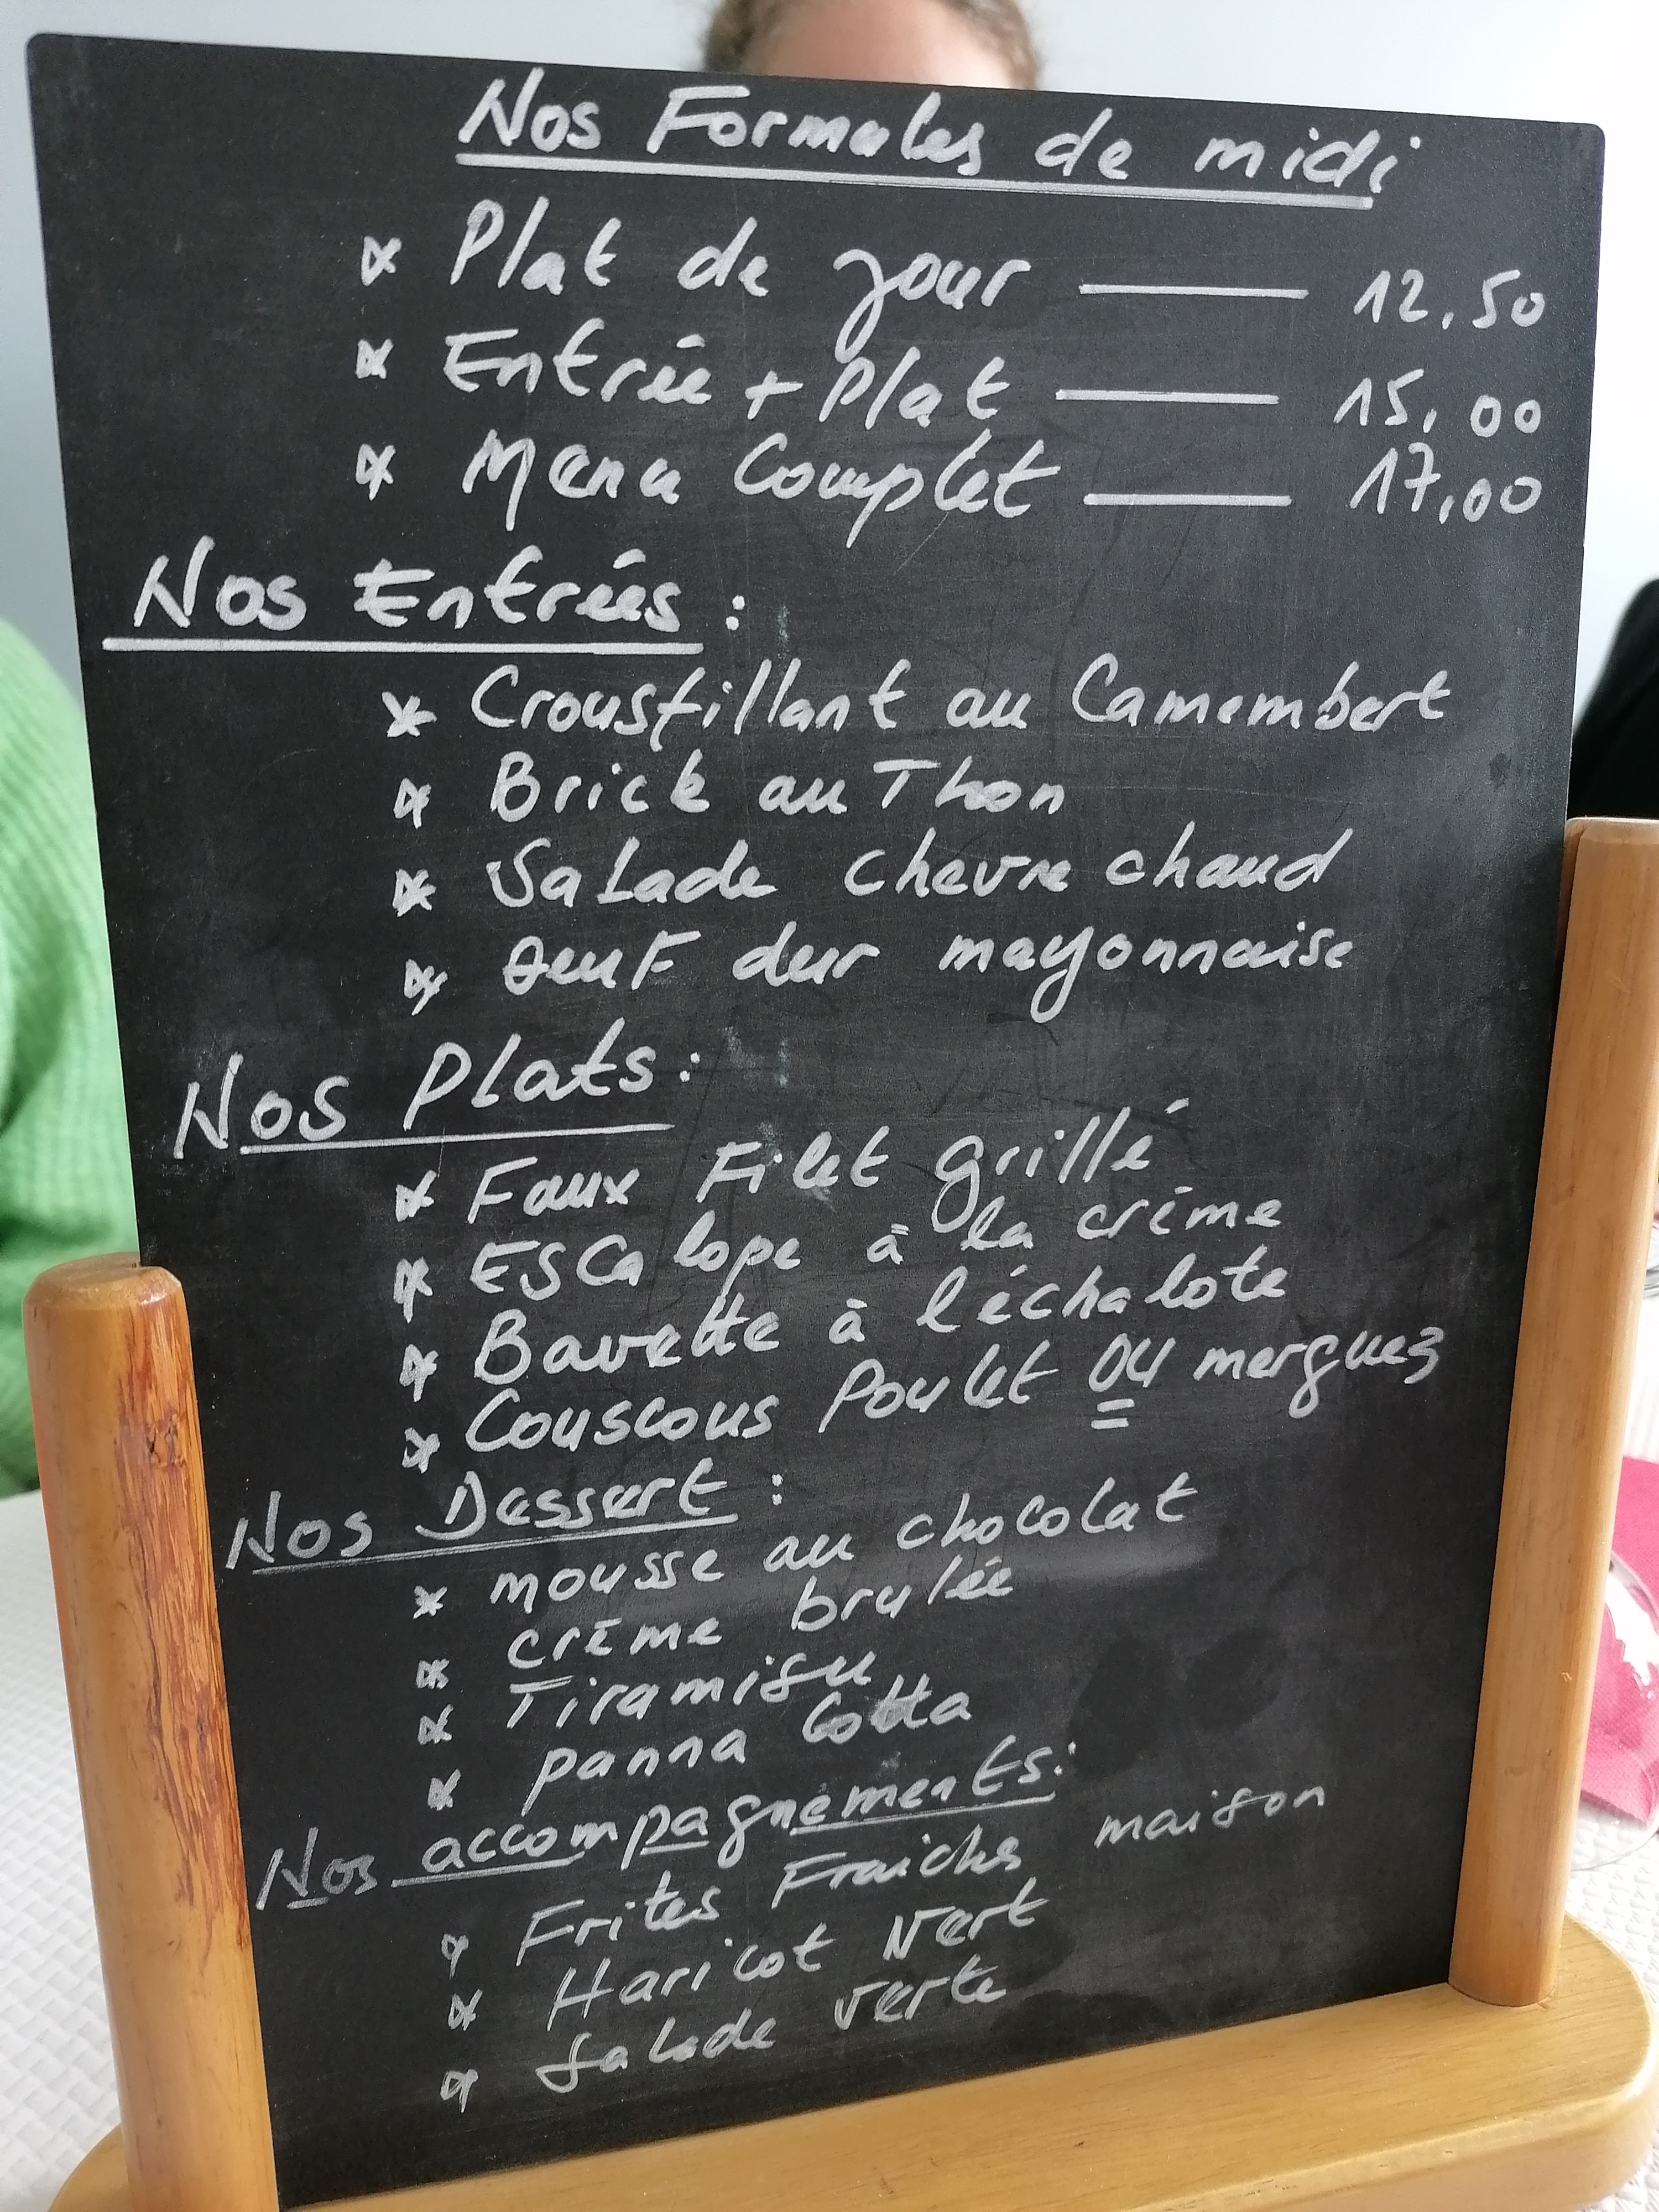 Nos Formules de midi
* Plat de jour —— 12,50
* Entrée + Plat —— 15,00
* Menu Complet —— 17,00
Nos Entrées :
* Crousfillant au Camembert
* Brick au Thon
* Salade chevre chaud
* OeuF dur mayonnaise
Nos Plats :
* Faux Filet grillé
* Escalope à la crème
* Bavette à l'échalote
* Couscous Poulet ou merguez
Nos Dessert :
* mousse au chocolat
* crème brulée
* Tiramisu
* panna Cotta
Nos accompagnements :
* Frites Fraiches maison
* Haricot Vert
* Salade verte